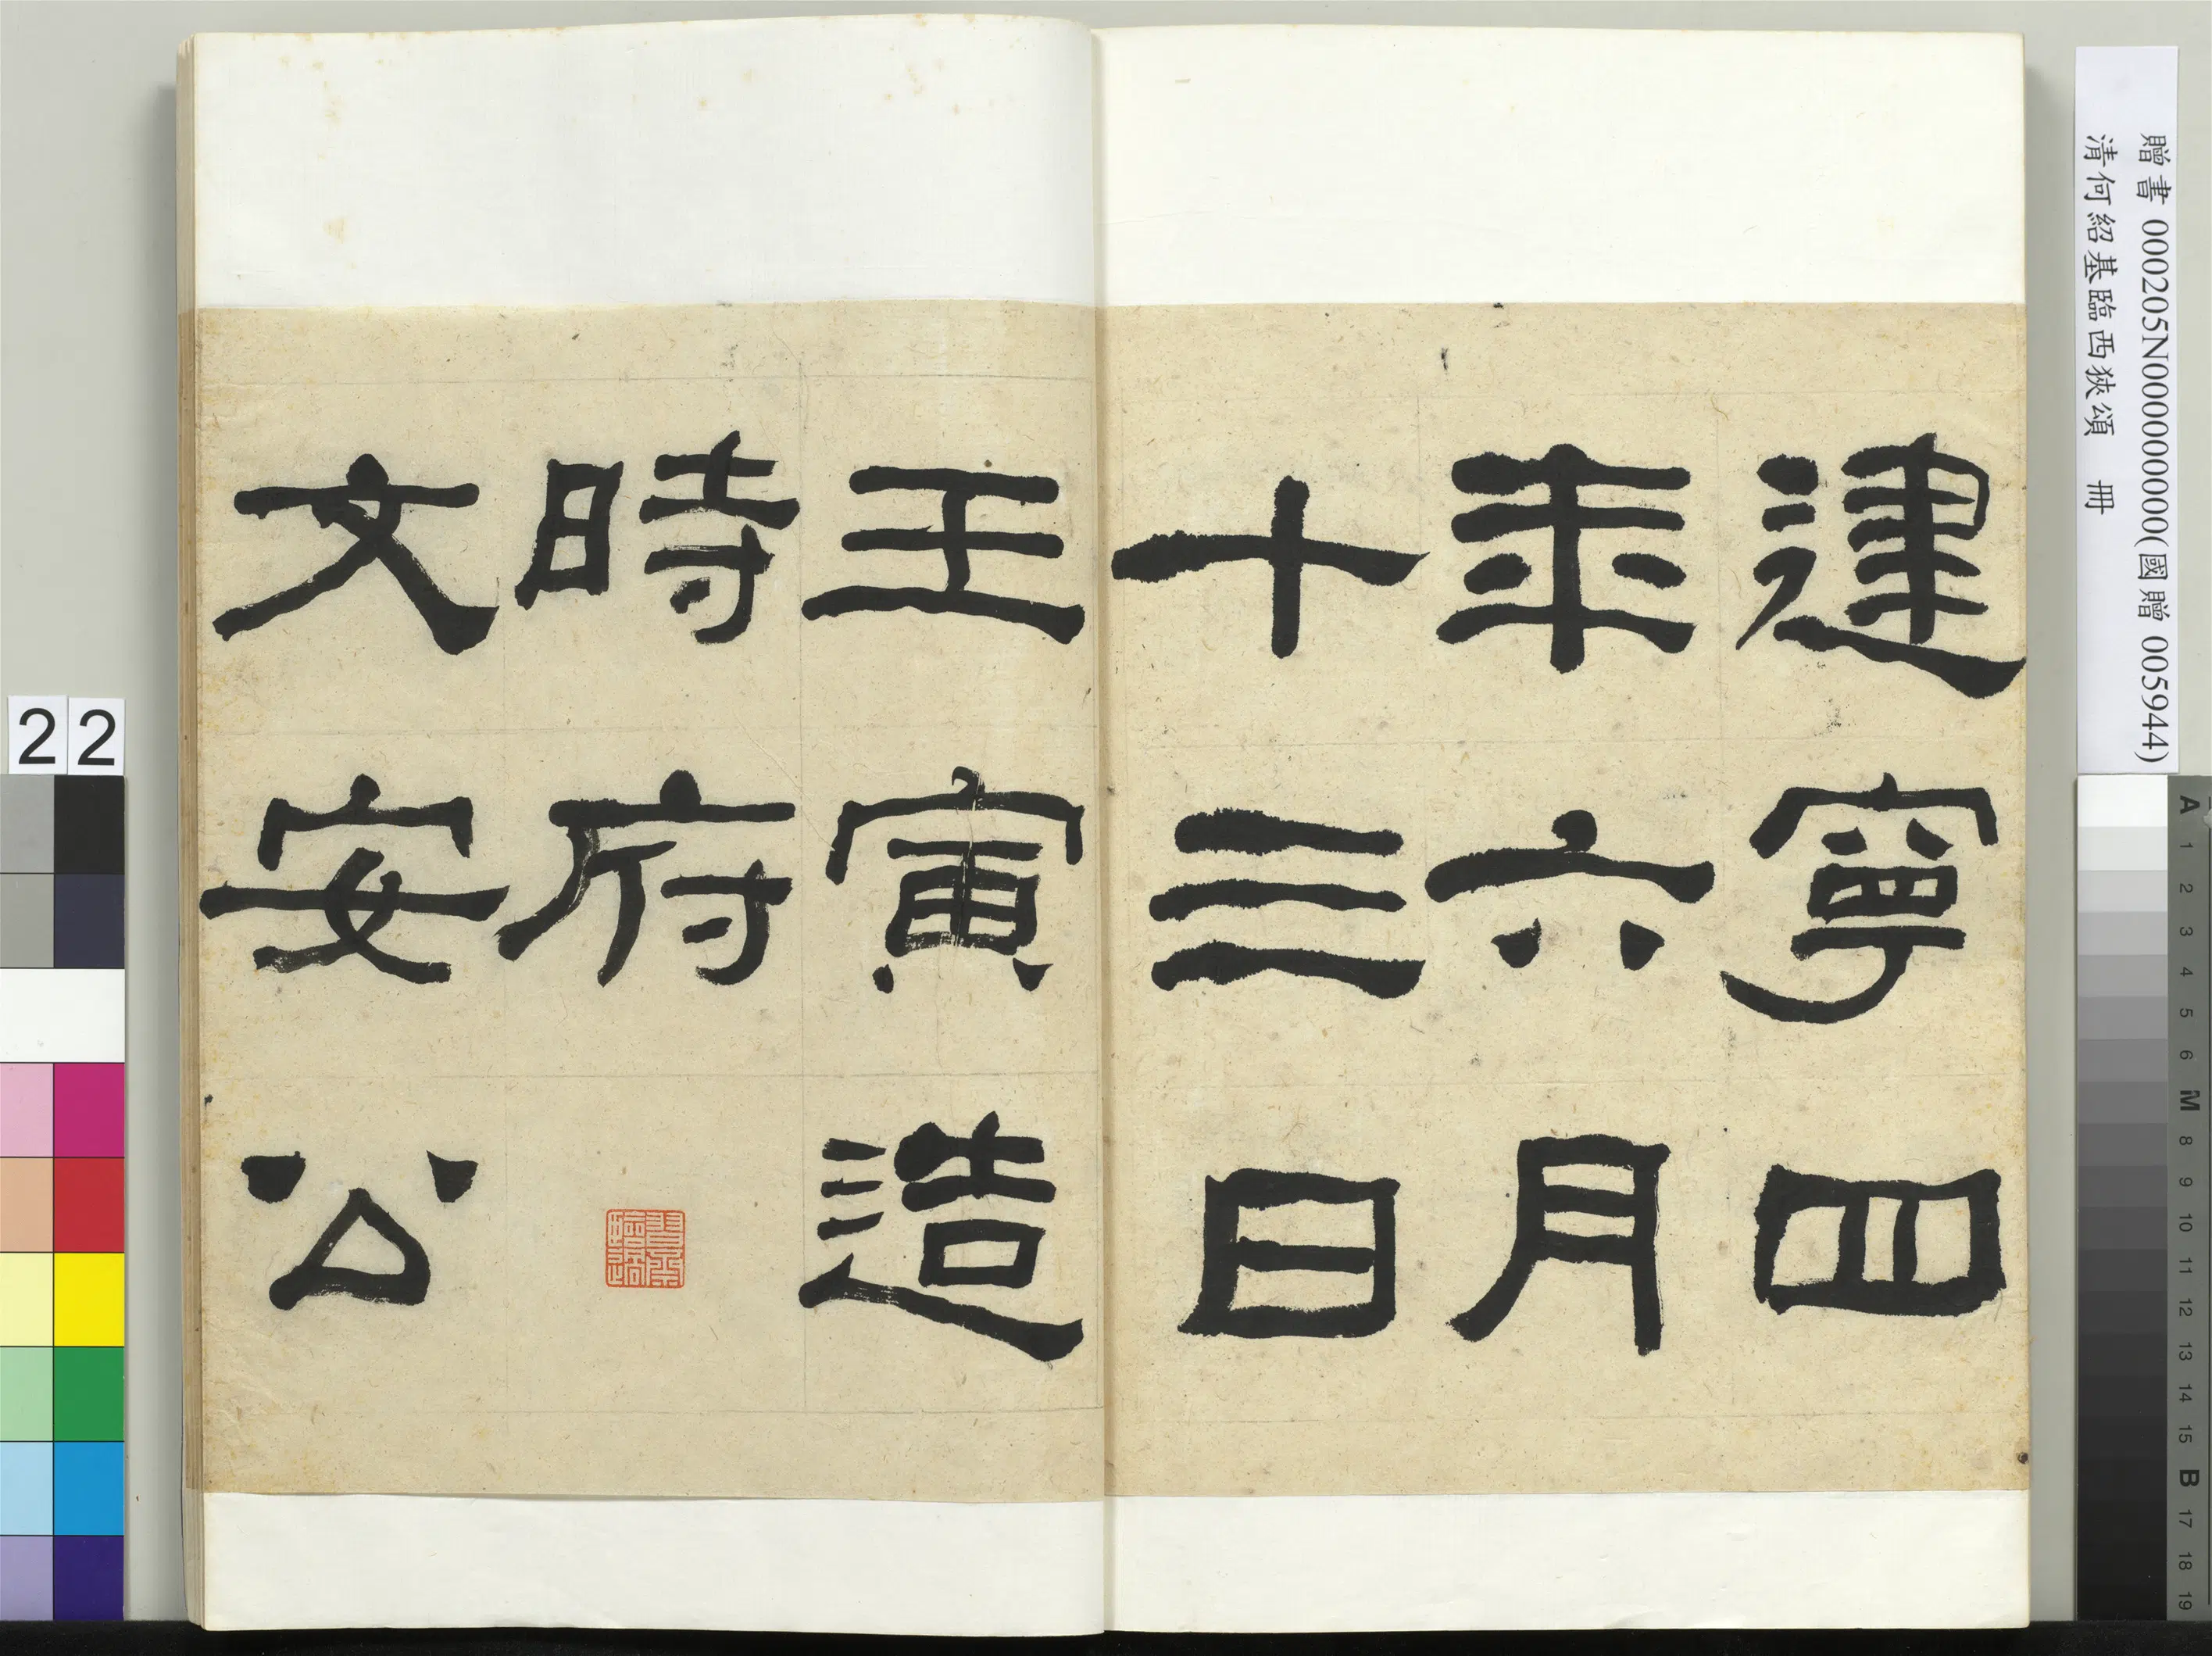 建寧四
年六月
十三日
壬寅造
時府
文安公
贈書 000205N000000000(國贈 005944)
清何紹基臨西狹頌 冊
22
A 1 2 3 4 5 6 M 8 9 10 11 12 13 14 15 B 17 18 19